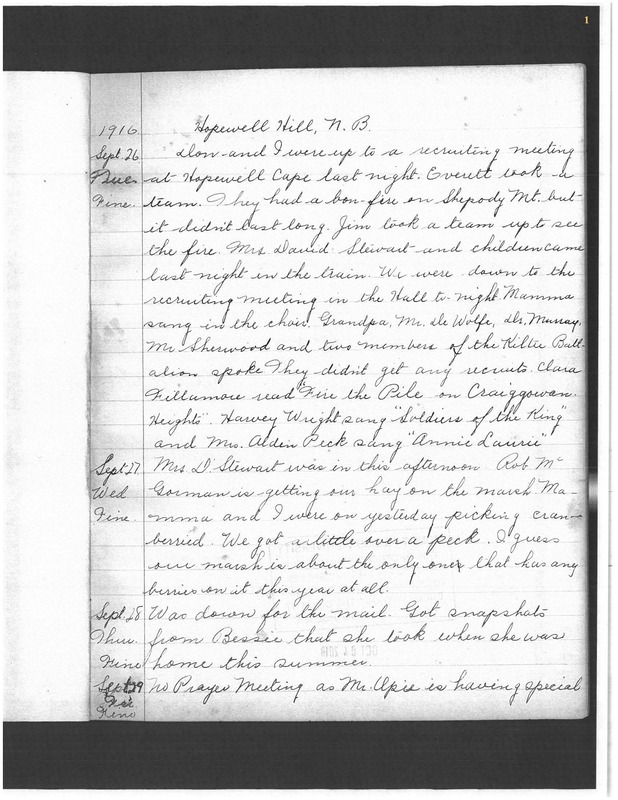 1
1916 Hopewell Hill, N. B.
Sept. 26 Don and I were up to a recruiting meeting
Tues. at Hopewell Cape last night. Everett took a
Fine. team. They had a bon-fire on Shepody Mt. but
it didn't last long. Jim took a team up to see
the fire. Mrs. David Stewart and children came
last night in the train. We were down to the
recruiting meeting in the Hall to-night. Mamma
sang in the choir. Grandpa, Mr. De Wolfe, Dr. Murray,
Mr. Sherwood and two members of the Kiltie Batt-
alion spoke They didn't get any recruits. Clara
Fillamore read "Fire the Pile on Craiggowan
Heights". Harvey Wright sang "Soldiers of the King"
and Mrs. Alden Peck sang "Annie Laurie"
Sept. 27 Mrs. D. Stewart was in this afternoon Rob. Mc
Wed Gorman is getting our hay on the marsh. Ma-
Fine. mma and I were on yesterday picking cran-
berried. We got a little over a peck. I guess
our marsh is about the only one that has any
berries on it this year at all.
Sept. 28 Was down for the mail. Got snapshots
Thur. from Bessie that she took when she was
Fine home this summer.
Sept. 29 No Prayer Meeting as Mr. is having special
Fri
Fine